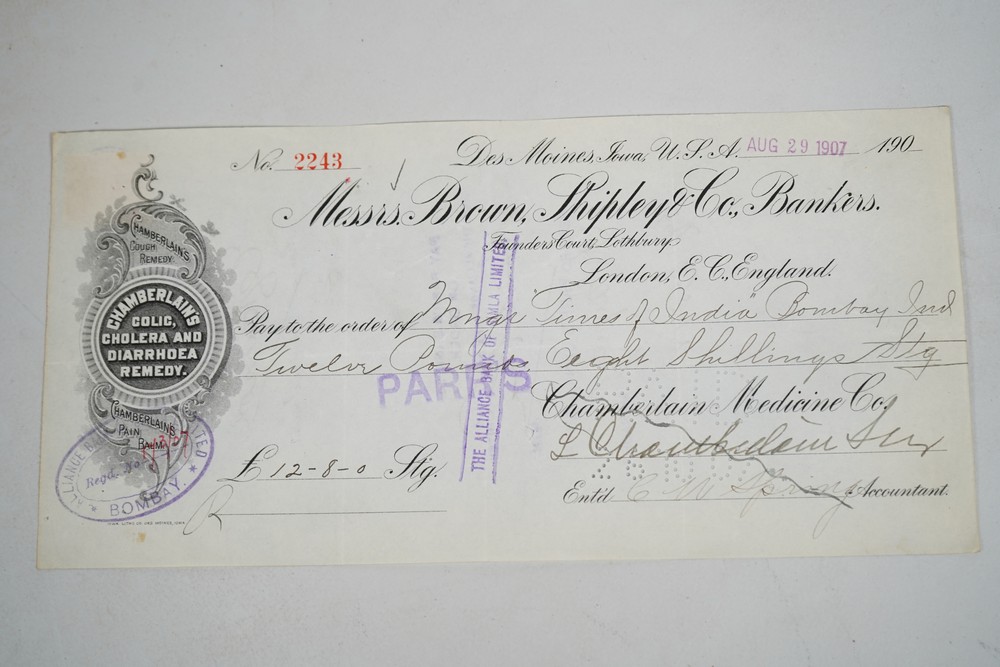 No. 2243
Des Moines, Iowa, U.S.A. AUG 29 1907 190
Messrs. Brown, Shipley & Co., Bankers.
Founders Court, Lothbury
London, E.C., England.
Pay to the order of Mngr Times of India Bombay Ind
Twelve Pounds Eeght Shillings Stg
PARR'S
THE ALLIANCE BANK OF SIMLA LIMITED
Chamberlain Medicine Co.
L Chamberlain
£ 12-8-0 Stg.
Ent'd Accountant.
CHAMBERLAIN'S
COUGH
REMEDY
CHAMBERLAIN'S
COLIC,
CHOLERA AND
DIARRHOEA
REMEDY.
CHAMBERLAIN'S
PAIN
BALM
ALLIANCE LIMITED
Regd. No
BOMBAY.